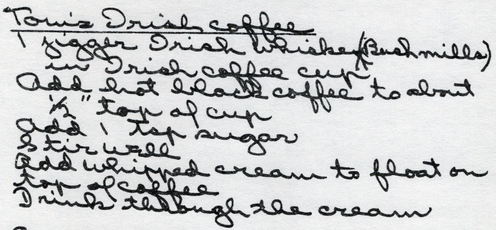 Tom's Irish coffee
1 jigger Irish Whiskey (Bushmills)
in Irish coffee cup
Add hot black coffee to about
1/2" top of cup
Add 1 tsp sugar
Stir well
Add whipped cream to float on
top of coffee
Drink through the cream